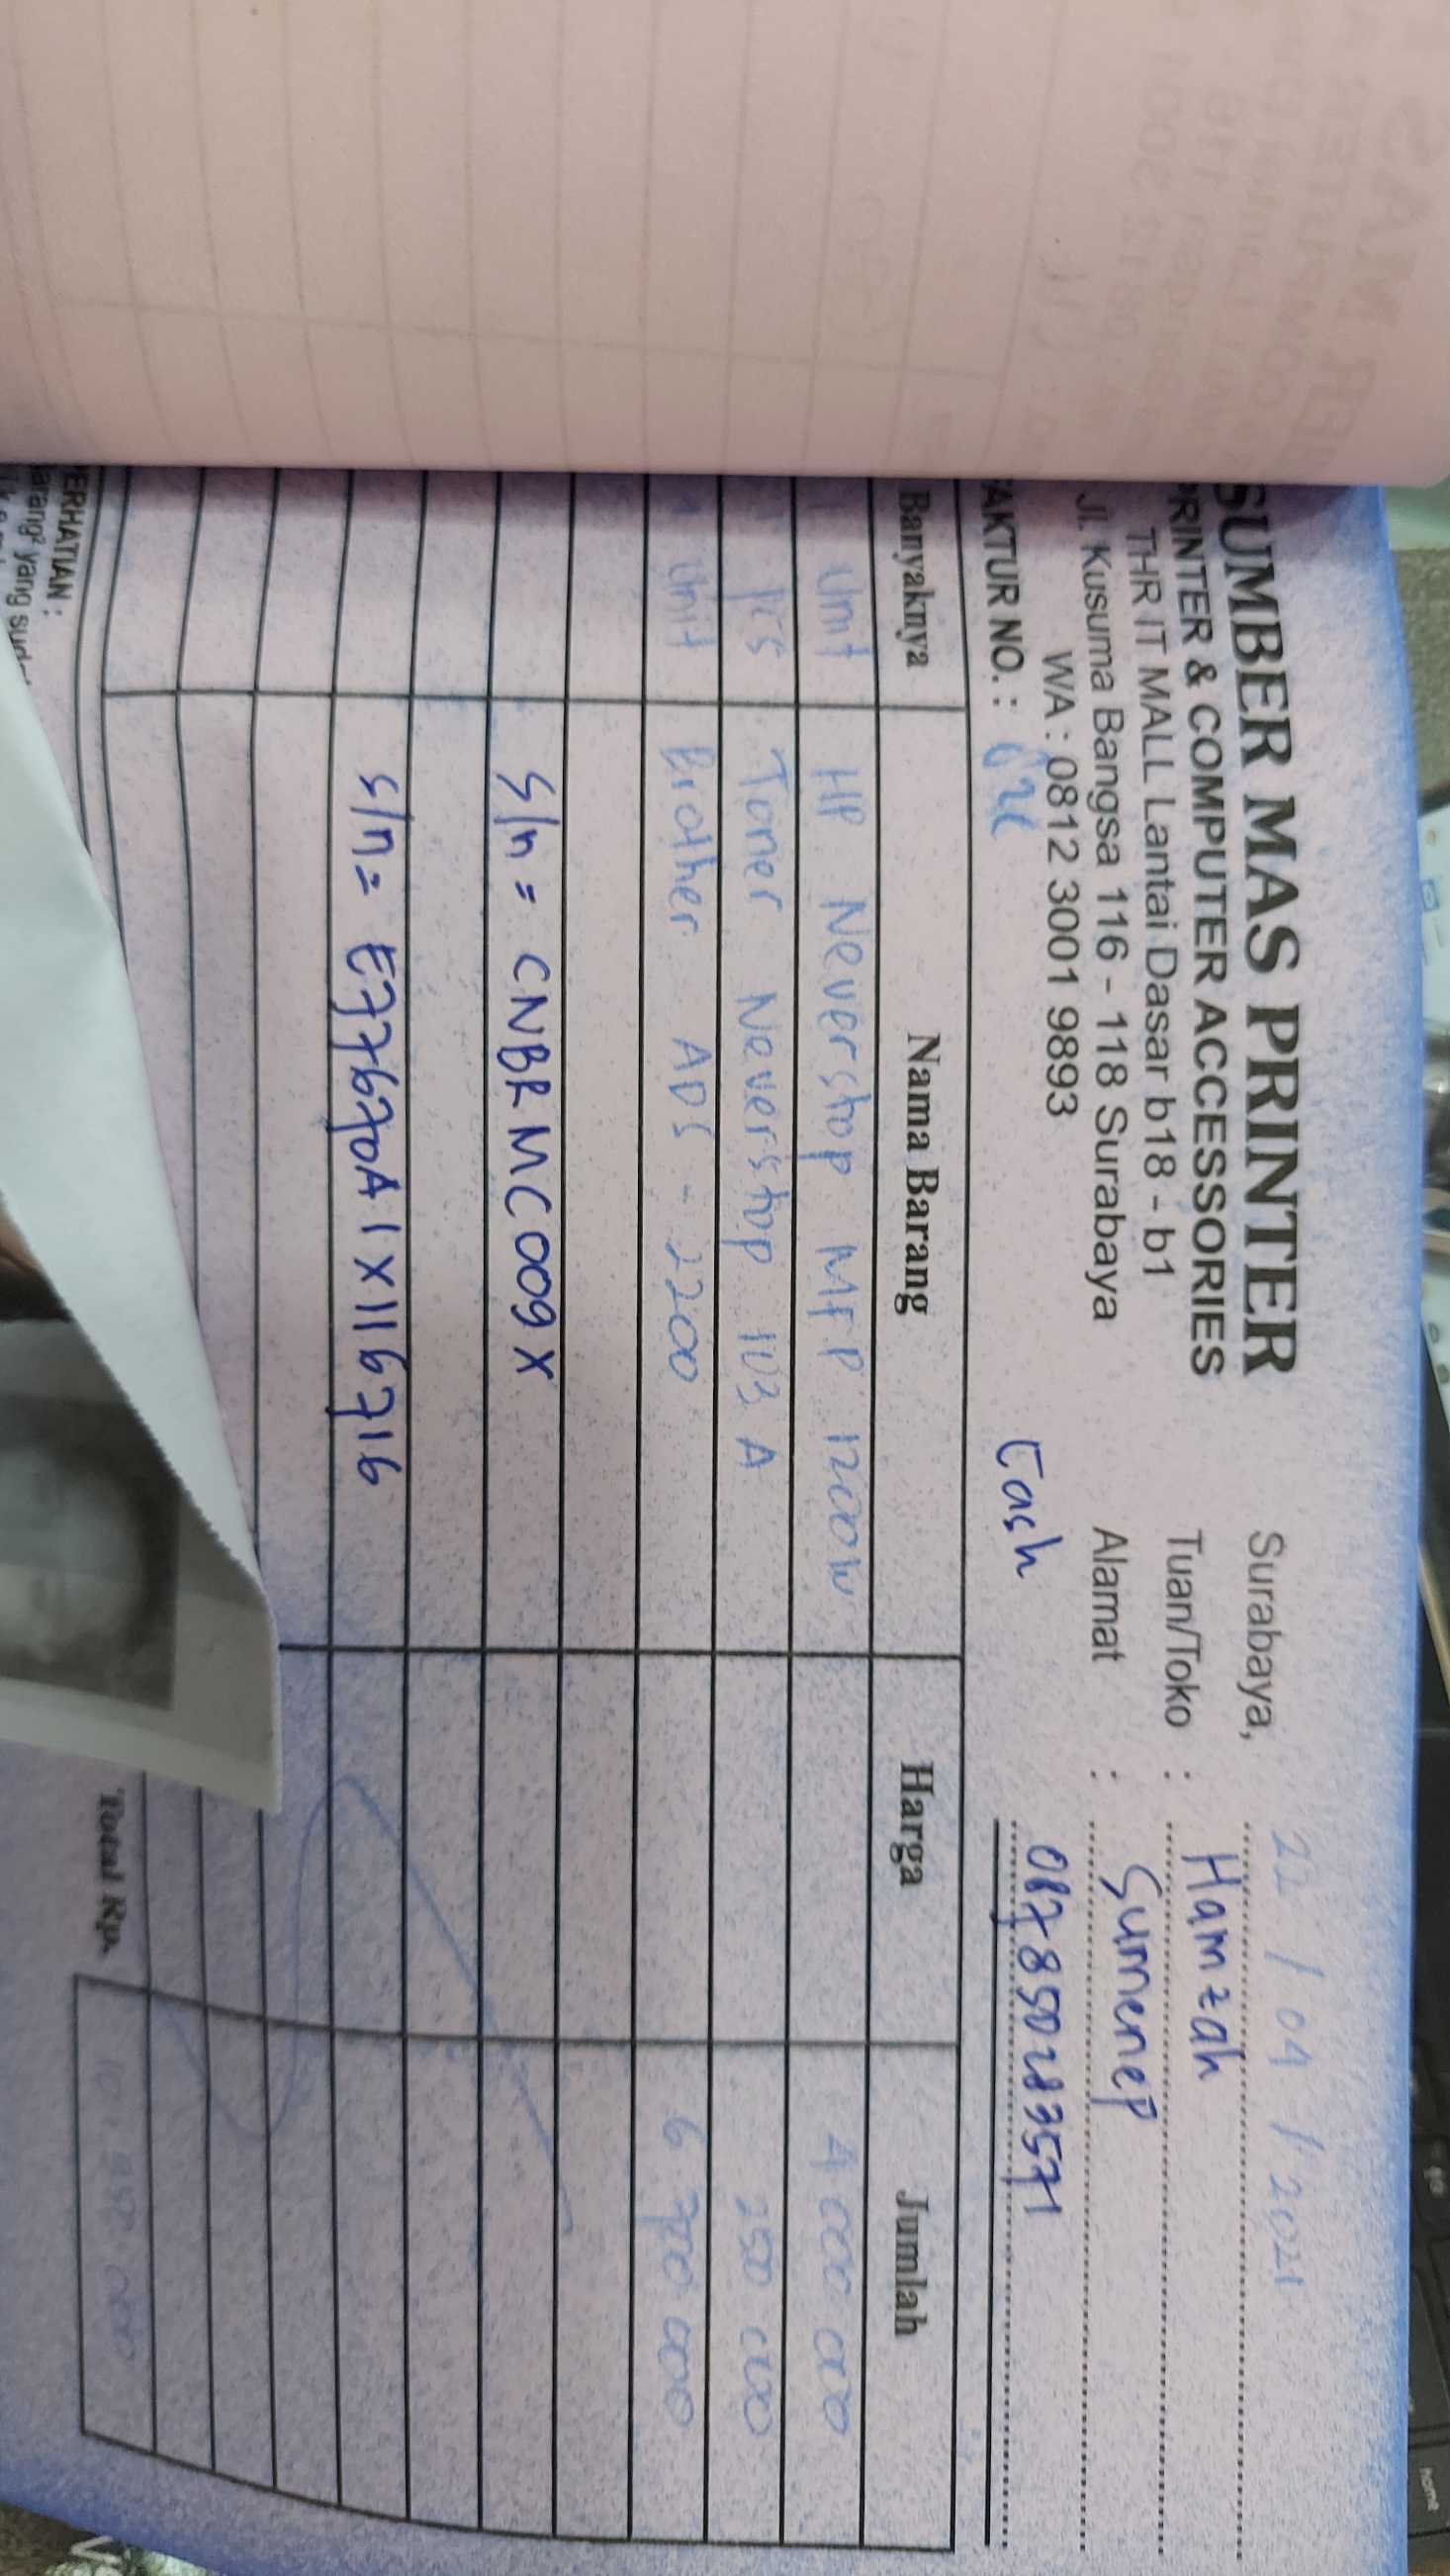 SUMBER MAS PRINTER
PRINTER & COMPUTER ACCESSORIES
THR IT MALL Lantai Dasar b18 - b1
Jl. Kusuma Bangsa 116 - 118 Surabaya
WA : 0812 3001 9893
Surabaya, 22 / 04 / 2021
Tuan/Toko : Hamzah
Alamat : Sumenep
087850283571
AKTUR NO. : Cash
Banyaknya Nama Barang Harga Jumlah
Unit HP Neverstop MFP 1200W 4 000 000
pcs Toner Neverstop 103 A 250 000
Unit Brother ADS - 2200 6 700 000
S/n = CNBRMC009X
S/n = E77670A1X116716
Total Rp.
ERHATIAN :
arang² yang sud
home